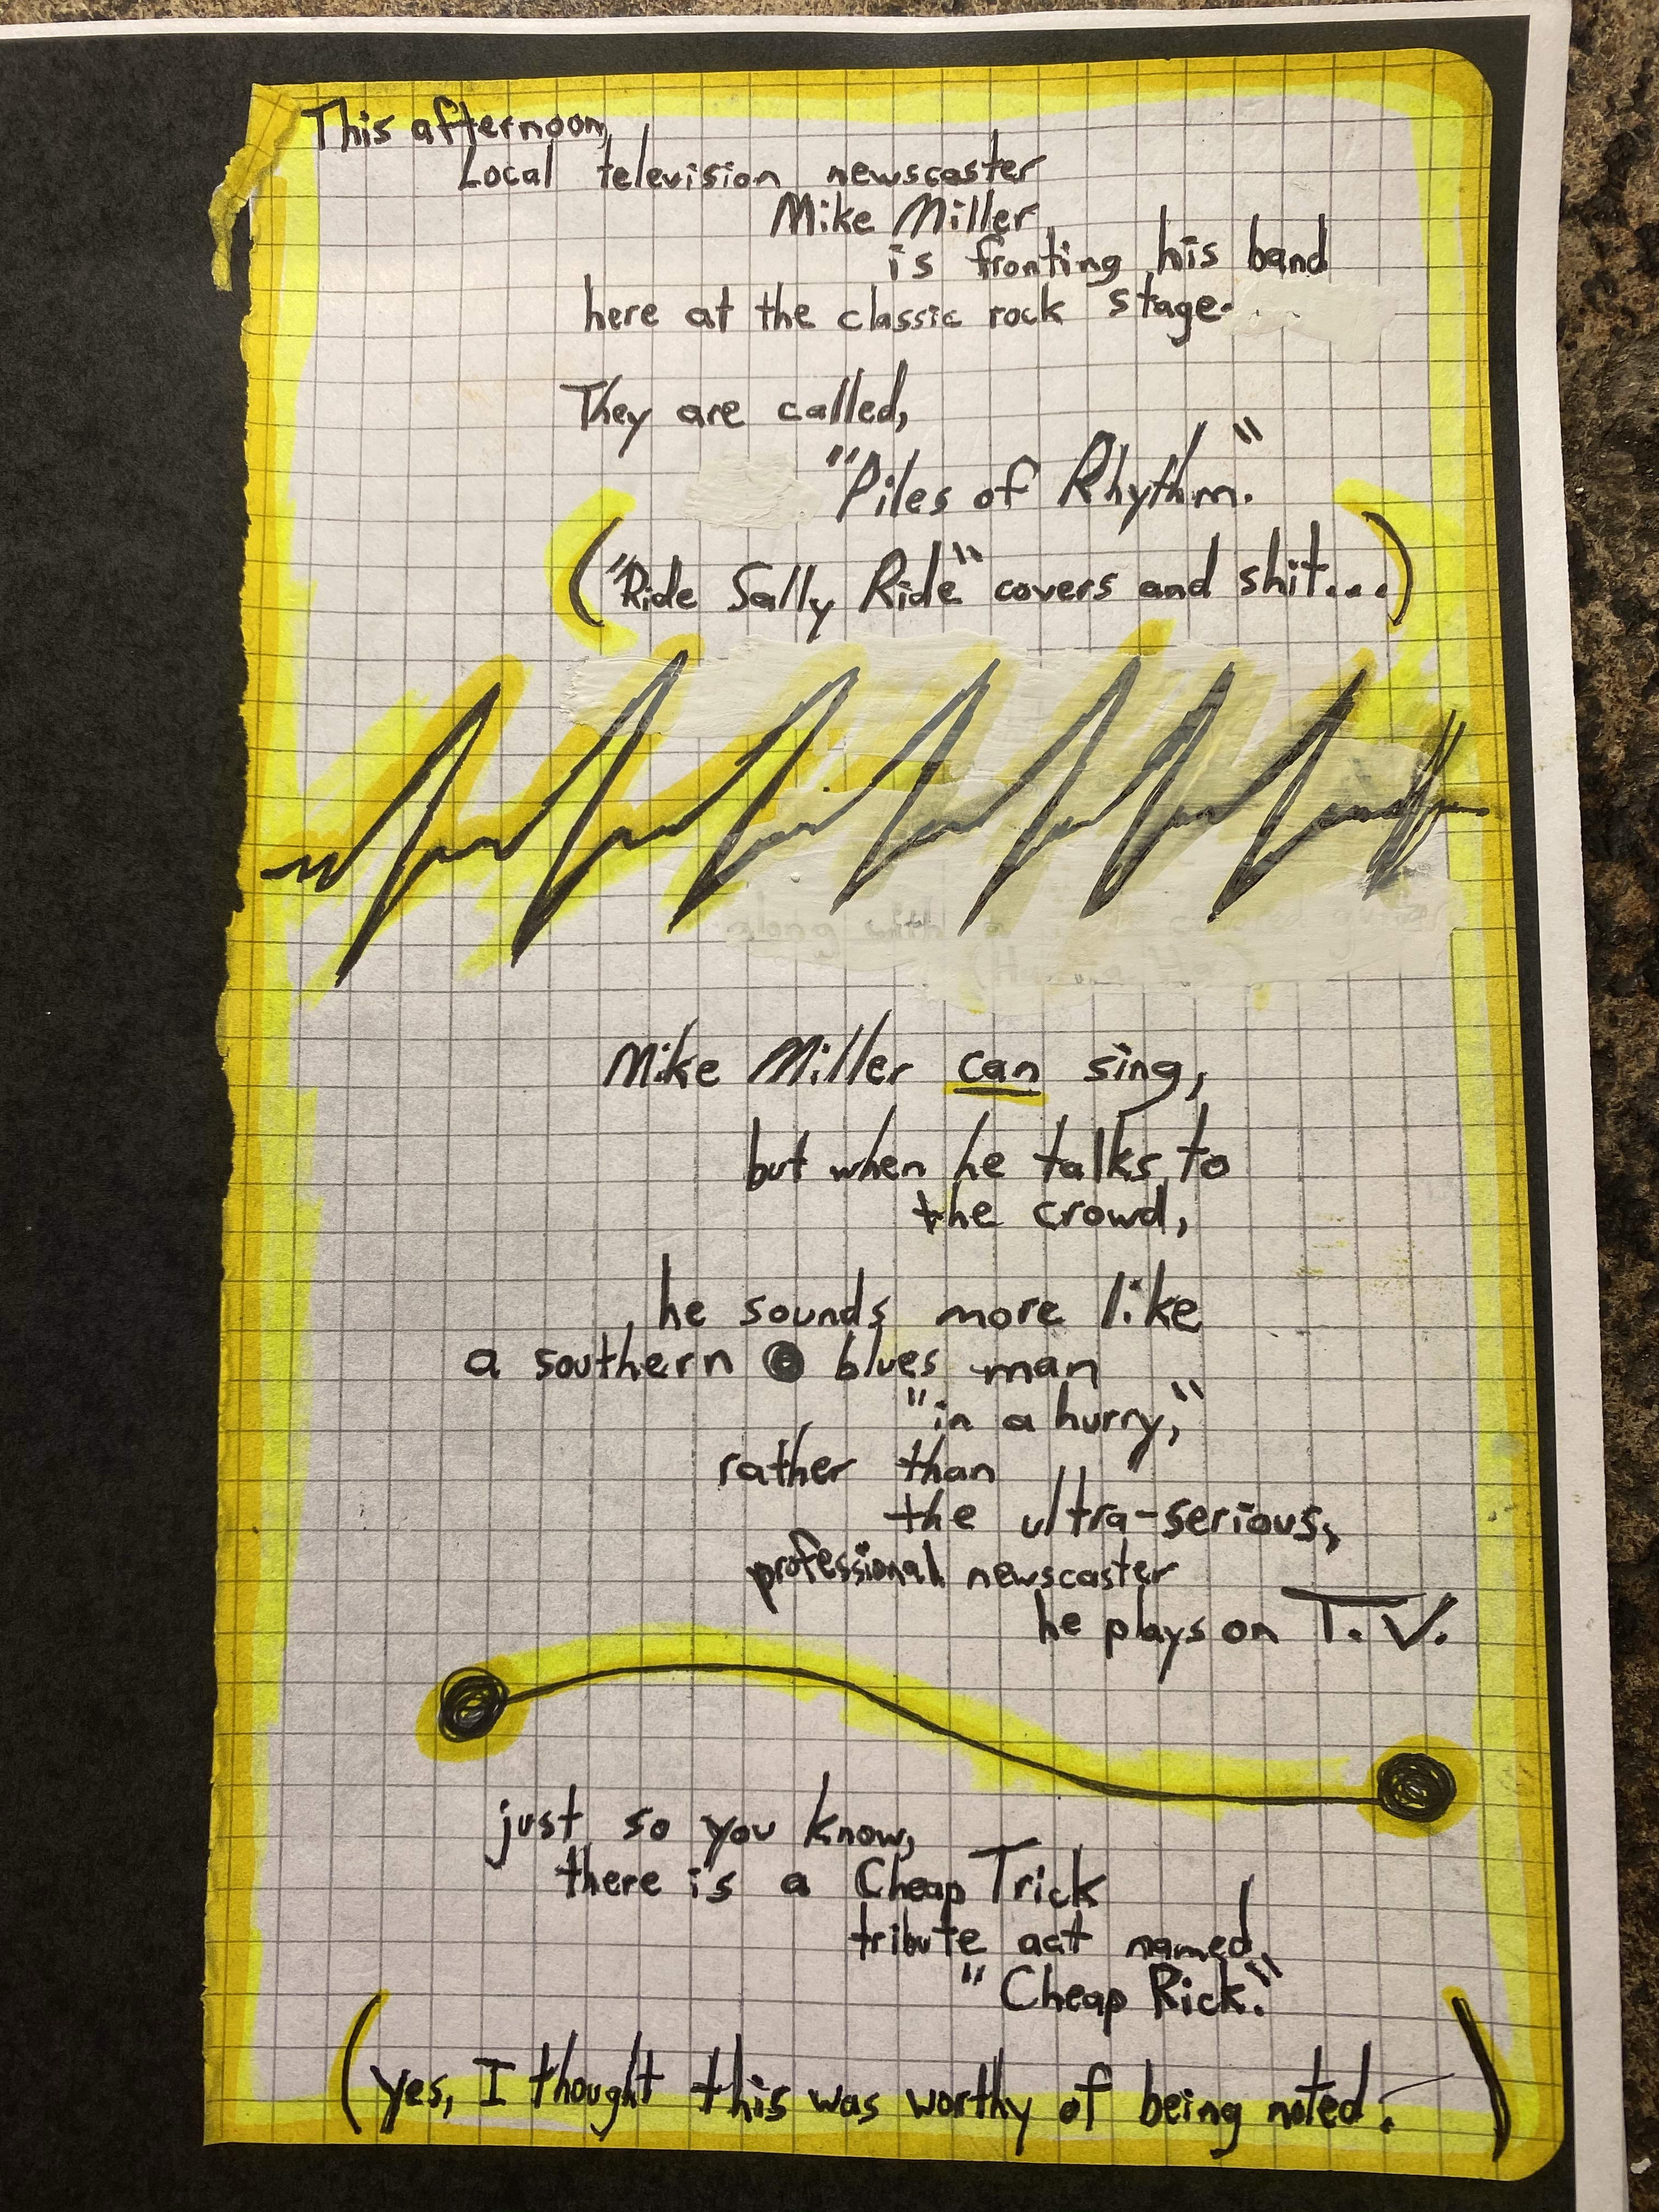 This afternoon,
Local television newscaster
Mike Miller
is fronting his band
here at the classic rock stage.
They are called,
"Piles of Rhythm."
("Ride Sally Ride" covers and shit...)
along with a
Mike Miller can sing,
but when he talks to
the crowd,
he sounds more like
a southern blues man
"in a hurry,"
rather than
the ultra-serious,
professional newscaster
he plays on T.V.
just so you know,
there is a Cheap Trick
tribute act named,
"Cheap Rick."
(yes, I thought this was worthy of being noted.)